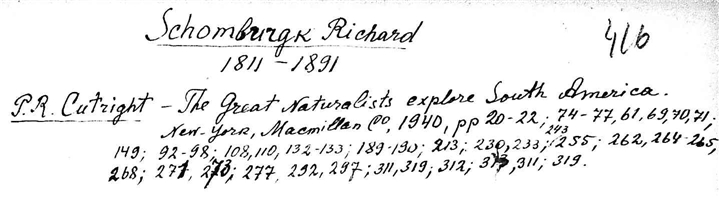 Schomburgk Richard 416
1811-1891
P.R. Cutright - The Great Naturalists explore South America.
New-York, Macmillan Co, 1940, pp 20-22; 74-77, 61, 69, 70, 71;
243
149; 92-98; 108, 110, 132-133; 189-190; 213; 230, 233; 255; 262, 264-265,
268; 271, 273; 277, 292, 297; 311, 319; 312; 313, 311; 319.